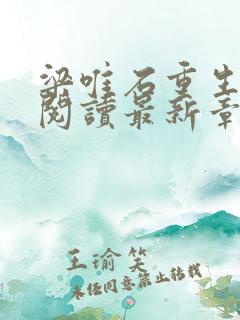 梁唯石重生
閱讀最新章
王瑜笑
未经同意禁止转载